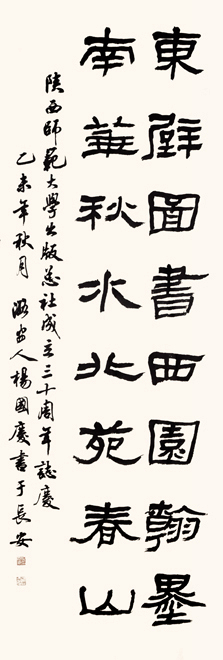 東壁圖書西園翰墨
南華秋水北苑春山
陝西師範大學出版總社成立三十周年誌慶
乙未年秋月 潞安人楊國慶書于長安